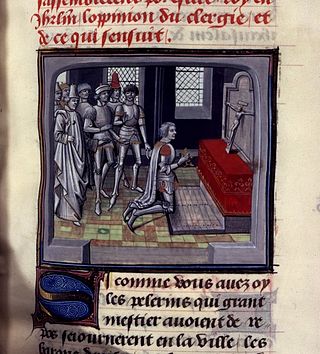 roy en
Jhrlm lopinion du clergie et
de ce qui sensuit.
SI comme vous auez oy
les pelerins qui grant
mestier auoient de re
pos seiournerent en la ville les